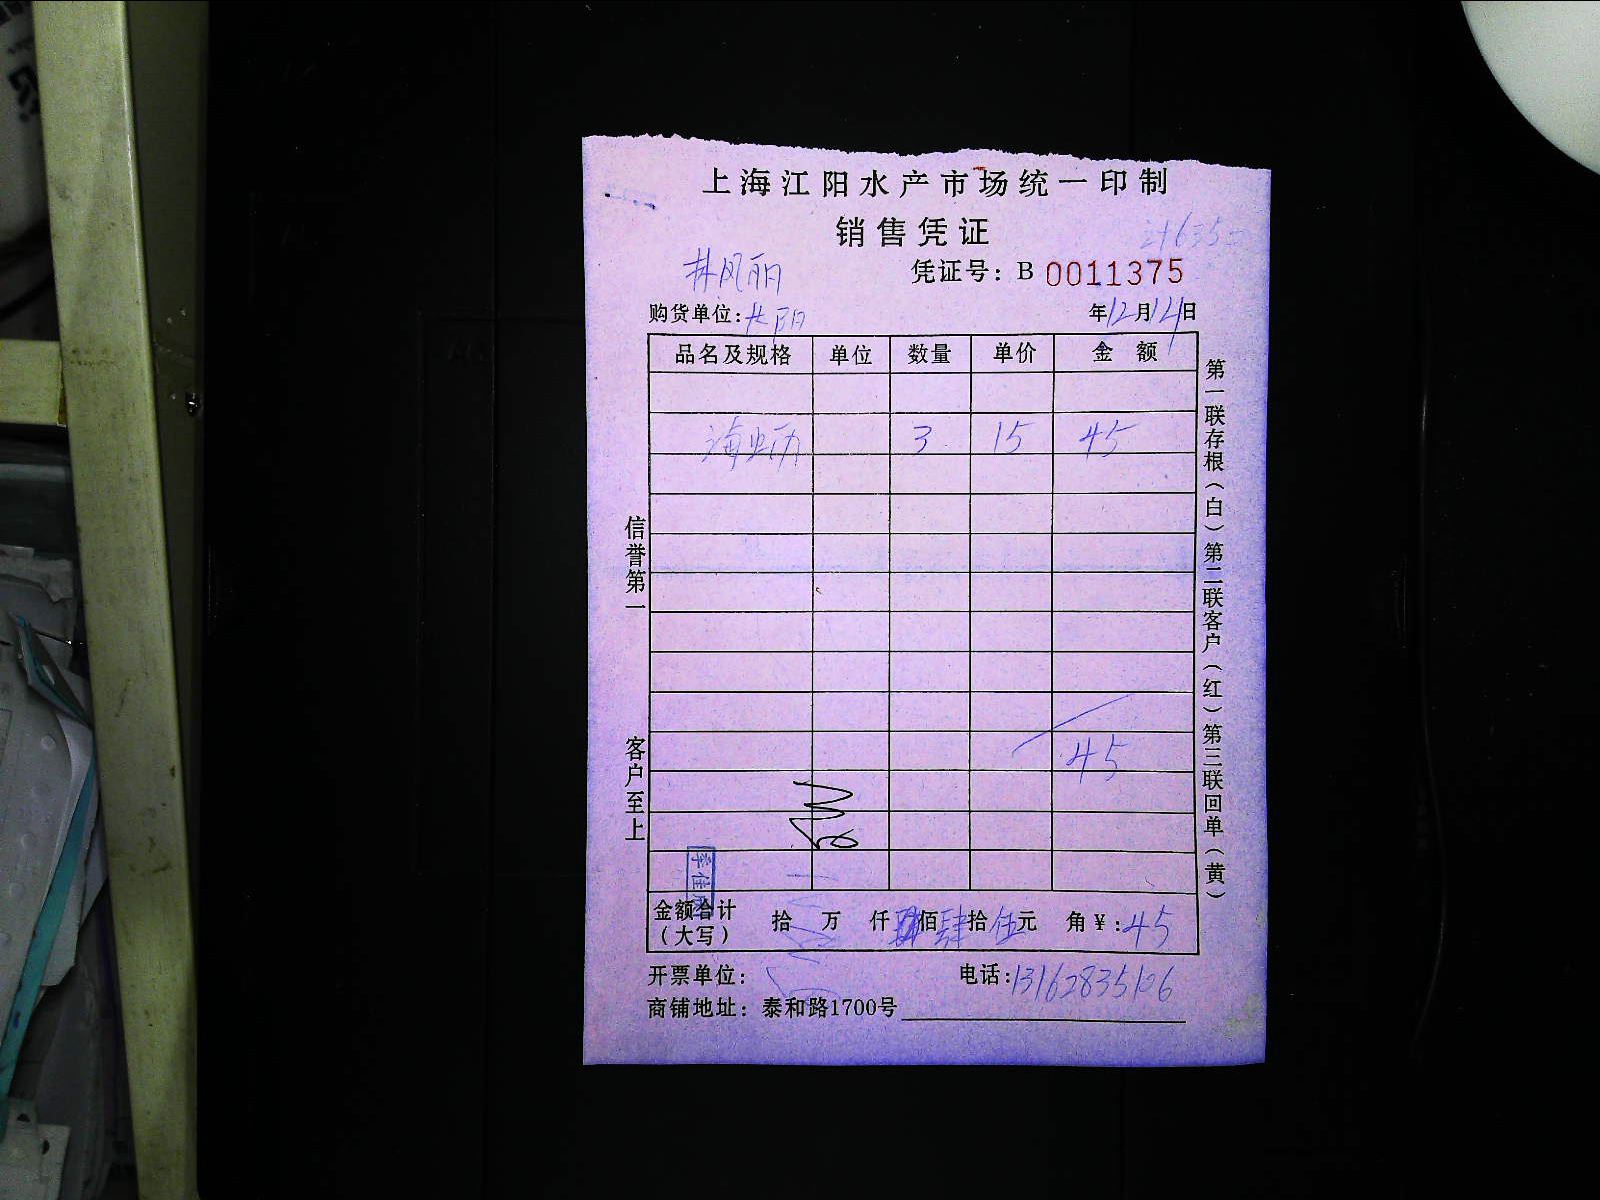 上海江阳水产市场统一印制
销售凭证
凭证号：B 0011375
林风丽
购货单位：长阳
年12月14日
品名及规格 单位 数量 单价 金额
海蛎 3 15 45
45
金额合计（大写） 拾 万 仟 佰肆拾伍元 角￥：45
开票单位：
电话：
商铺地址：泰和路1700号
信誉第一
客户至上
第一联存根（白）第二联客户（红）第三联回单（黄）